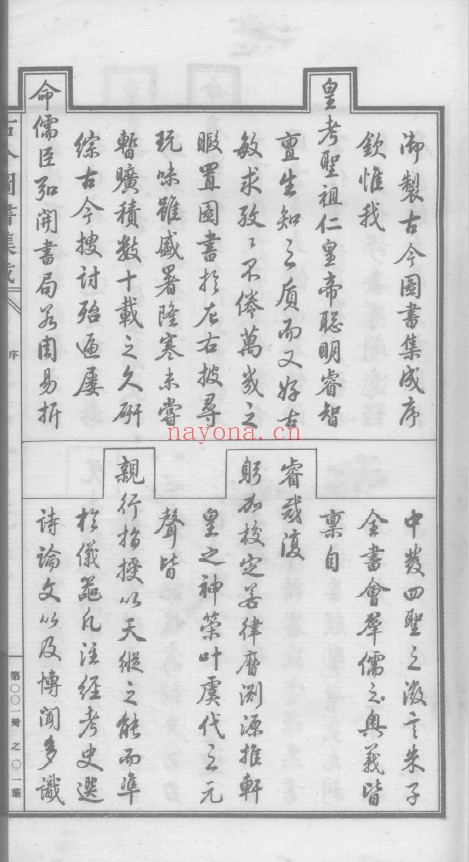 御製古今圖書集成序
欽惟我
皇考聖祖仁皇帝聰明睿智
亶生知之質而又好古
敏求孜〻不倦萬幾之
暇置圖書於左右披尋
玩味雖盛暑隆寒未嘗
暫曠積數十載之久研
綜古今搜討殆遍屢
命儒臣弘開書局若周易折
中發四聖之微言朱子
全書會羣儒之奧義皆
稟自
睿裁復
躬加校定若律曆淵源推軒
皇之神策叶虞代之元
聲皆
親行指授以天縱之能而準
於儀器凡注經考史選
詩論文以及博聞多識
古今圖書集成
序
nayona.cn